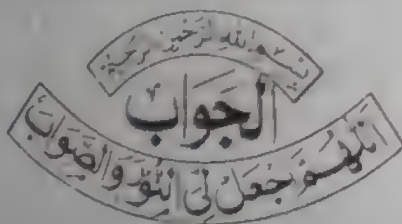 بِسْمِ اللهِ الرَّحْمٰنِ الرَّحِيْمِ
اَلْجَوَابُ
اَللّٰهُمَّ جْعَلْ لِّىَ النُّوْرَ وَالصَّوَابَ